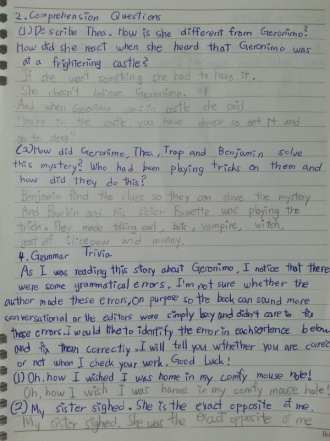 2. Comprehension Questions
(1) Describe Thea. How is she different from Geronimo?
How did she react when she heard that Geronimo was
at a frightening castle?
If she want something she had to have it.
She doesn't believe Geronimo.
And when Geronimo was in castle she said
"You're in the castle, you have dress so eat it and
go to sleep"
(2) How did Geronimo, Thea, Trap and Benjamin solve
this mystery? Who had been playing tricks on them and
how did they do this?
Benjamin find the clues so they can slove the mystery
And and his sister was playing the
trick. They made bats, vampire, witch,
gost of and mummy.
4. Grammar Trivia
As I was reading this story about Geronimo, I notice that there
were some grammatical errors. I'm not sure whether the
author made these errors, on purpose so the book can sound more
conversational or the editors were simply lazy and didn't care to fix
these errors. I would like to identify the error in each sentence below
and fix them correctly. I will tell you whether you are correct
or not when I check your work. Good Luck!
(1) Oh, how I wished I was home in my comfy mouse hole!
Oh, how I wish I was home in my comfy mouse hole!
(2) My sister sighed. She is the exact opposite of me.
My sister sighed. She was the exact opposite of me